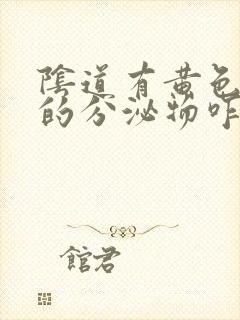 陰道有黄色
的分泌物咋
館君